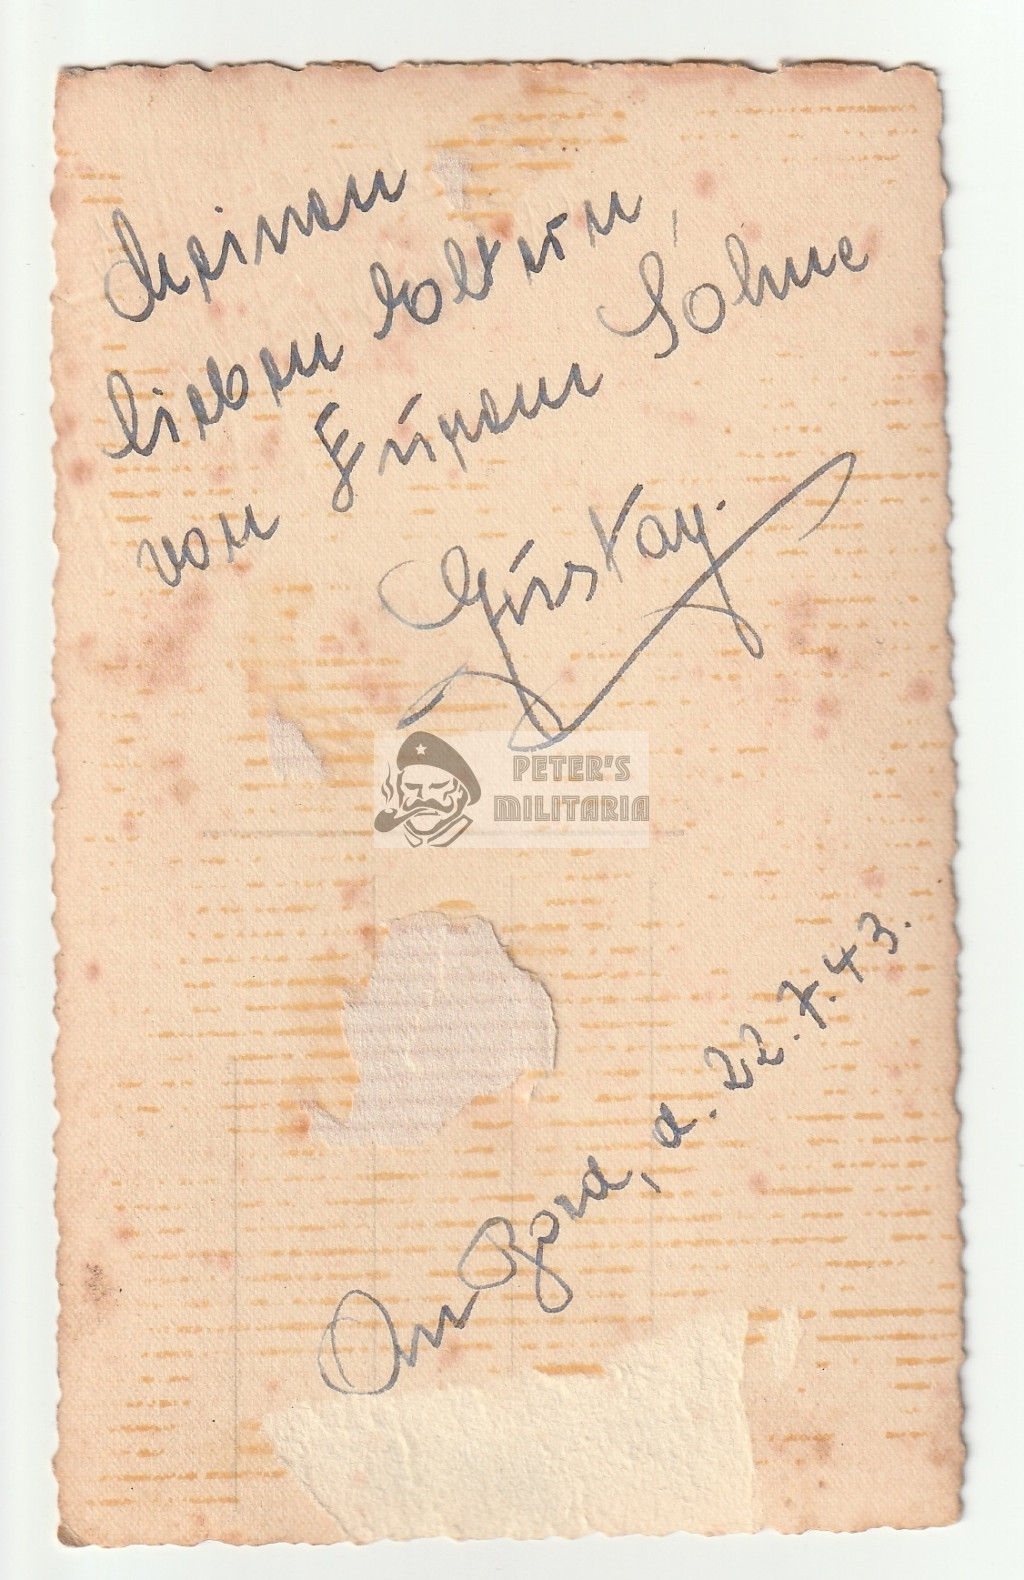 Meinen
lieben Eltern,
von Eurem Sohne
Gustav.
PETER'S
MILITARIA
An Bord, d. 22.7.43.